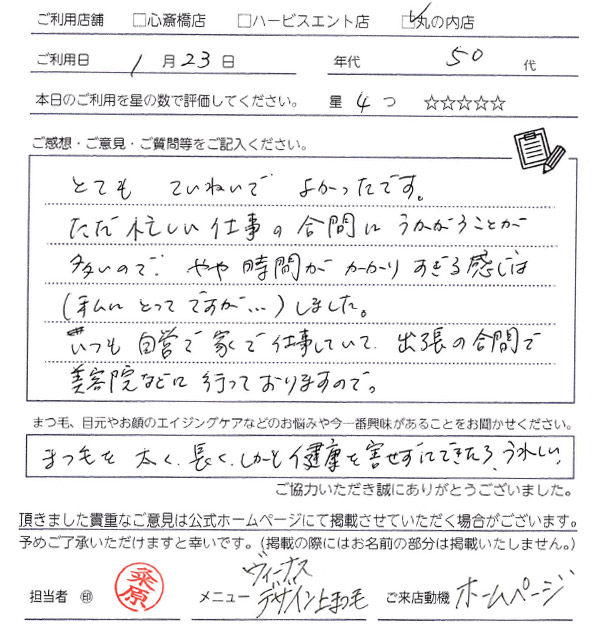 ご利用店舗 □心斎橋店 □ハービスエント店 ☑丸の内店
ご利用日 1月23日 年代 50代
本日のご利用を星の数で評価してください。 星 4つ ☆☆☆☆☆
ご感想・ご意見・ご質問等をご記入ください。
とても ていねいで よかったです。
ただ 忙しい仕事の合間に うかがうことが
多いので、やや時間が かかりすぎる感じは
(私にとってですが…)しました。
いつも 自営で家で仕事していて、出張の合間で
美容院などに行っておりますので。
まつ毛、目元やお顔のエイジングケアなどのお悩みや今一番興味があることをお聞かせください。
まつ毛を 太く、長く、しかも健康を害せずにできたら、うれしい
ご協力いただき誠にありがとうございました。
頂きました貴重なご意見は公式ホームページにて掲載させていただく場合がございます。
予めご了承いただけますと幸いです。(掲載の際にはお名前の部分は掲載いたしません。)
担当者 ㊞ 桑原 メニュー ヴィーナスデザイン上まつ毛 ご来店動機 ホームページ